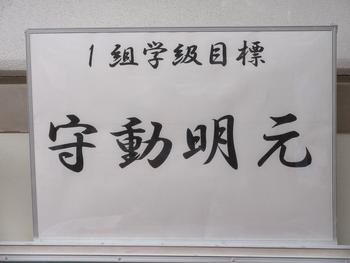 1組学級目標
守動明元